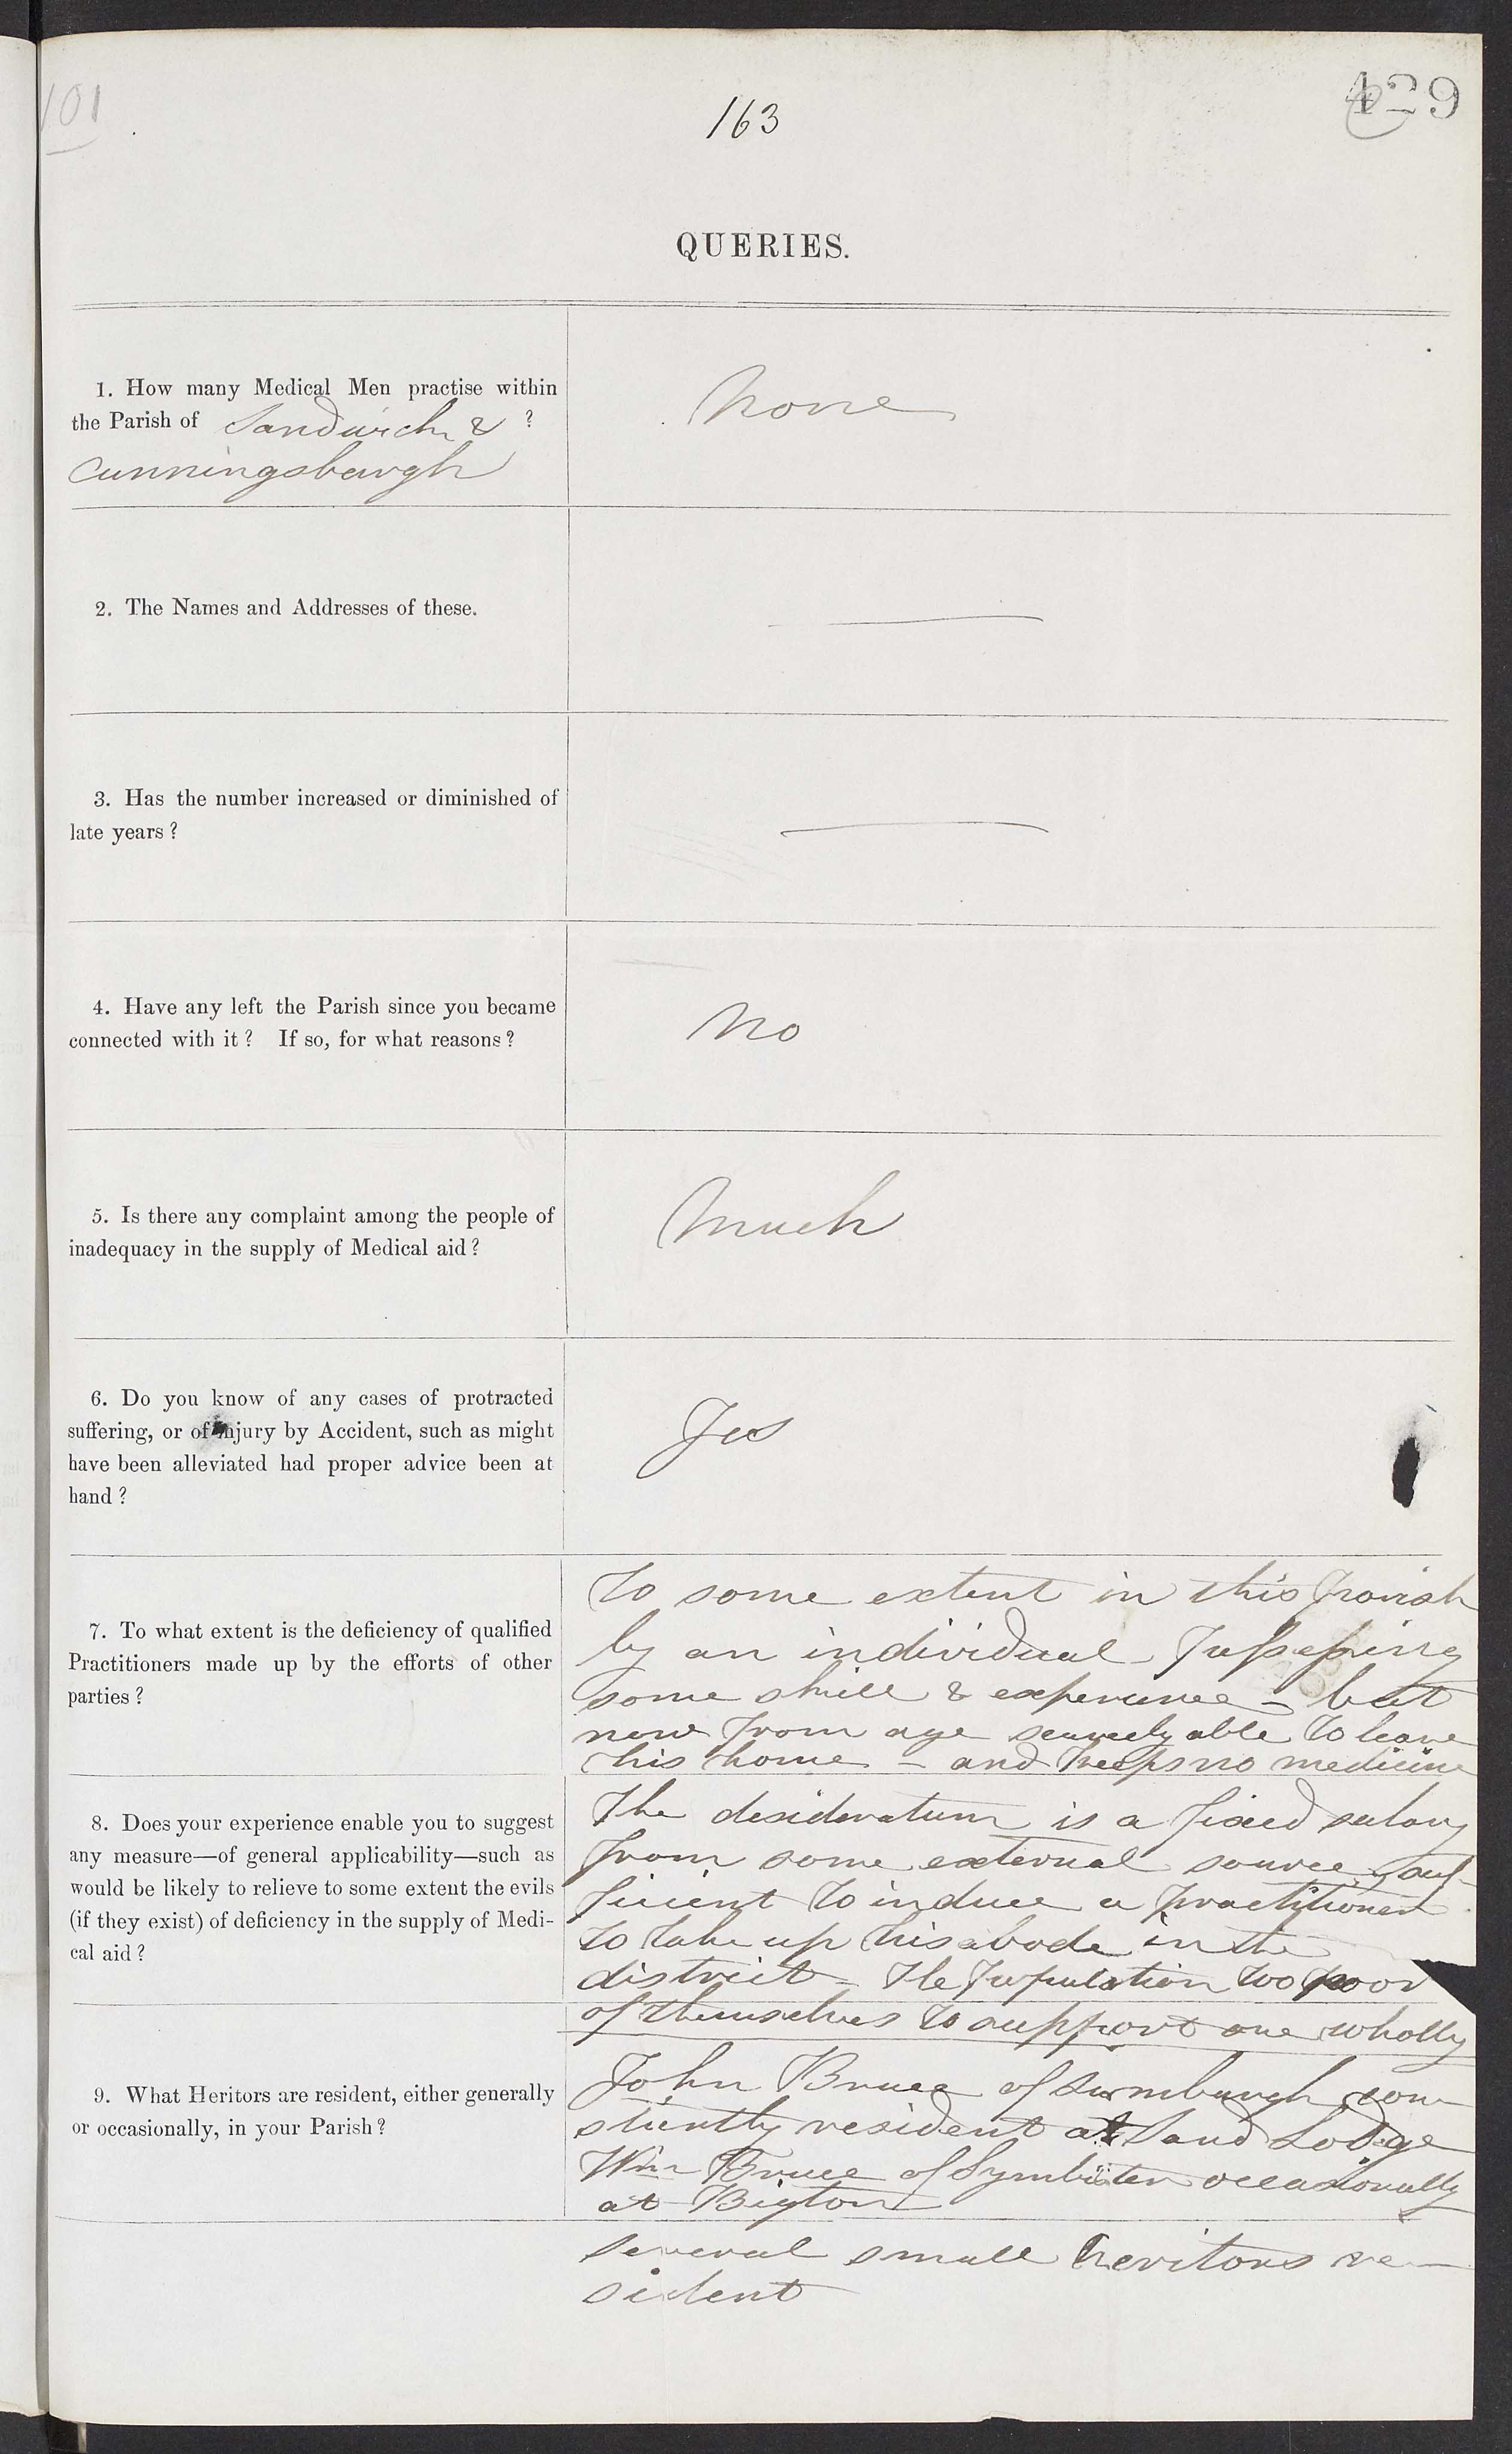 101
163
429
QUERIES.
1. How many Medical Men practise within
the Parish of Sandwick & ?
Cunningsburgh
None
2. The Names and Addresses of these.
3. Has the number increased or diminished of
late years ?
4. Have any left the Parish since you became
connected with it ? If so, for what reasons ?
No
5. Is there any complaint among the people of
inadequacy in the supply of Medical aid ?
Much
6. Do you know of any cases of protracted
suffering, or of injury by Accident, such as might
have been alleviated had proper advice been at
hand ?
Yes
7. To what extent is the deficiency of qualified
Practitioners made up by the efforts of other
parties ?
To some extent in this Parish
by an individual possessing
some skill & experience – but
now from age scarcely able to leave
his home – and keeps no medicine
8. Does your experience enable you to suggest
any measure—of general applicability—such as
would be likely to relieve to some extent the evils
(if they exist) of deficiency in the supply of Medi-
cal aid ?
The desideratum is a fixed salary
from some external source, suf-
ficient to induce a practitioner
to take up his abode in the
district – The population too poor
of themselves to support one wholly
9. What Heritors are resident, either generally
or occasionally, in your Parish ?
John Bruce of Sumburgh con-
stantly resident at Sand Lodge
Wm Bruce of Symbister occasionally
at Bigton
several small heritors re-
sident